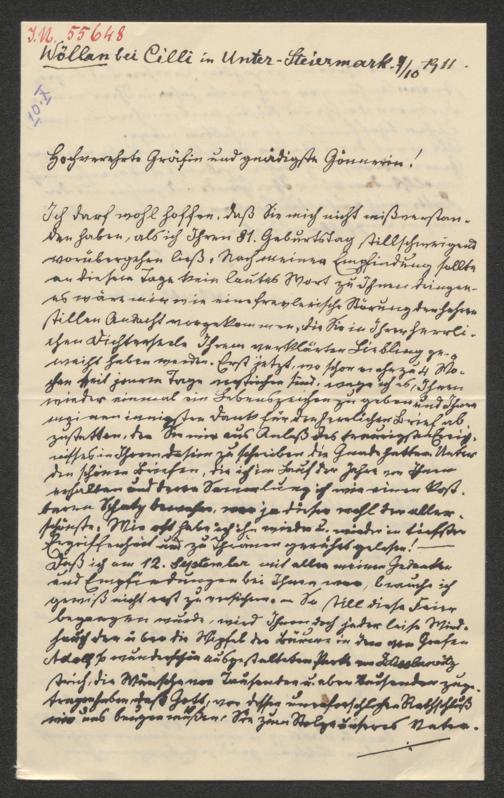 I.N. 55648
Wöllan bei Cilli in Unter-Steiermark. 9/10 1911.
10.X
Hochverehrte Gräfin und gnädigste Gönnerin!
Ich darf wohl hoffen, daß Sie mich nicht mißverstan-
den haben, als ich Ihren 81. Geburtstag stillschweigend
vorübergehen ließ. Nach meiner Empfindung sollte
an diesem Tage kein lautes Wort zu Ihnen dringen –
es wäre mir wie eine frevlerische Störung der hehren
stillen Andacht vorgekommen, die Sie in Ihrer herrli-
chen Dichterseele Ihrem verklärten Liebling ge-
weiht haben werden. Erst jetzt, wo schon nahezu 4 Wo-
chen seit jenem Tage verstrichen sind, wage ich es, Ihnen
wieder einmal ein Lebenszeichen zu geben und Ihnen
meinen innigsten Dank für den herrlichen Brief ab-
zustatten, den Sie mir aus Anlaß des traurigsten Ereig-
nisses in Ihrem Dasein zu schreiben die Gnade hatten. Unter
den schönen Briefen, die ich im Lauf der Jahre von Ihnen
erhalten und deren Sammlung ich wie einen kost-
baren Schatz bewahre, war ja dieser wohl der aller-
schönste. Wie oft habe ich ihn wieder u. wieder in tiefster
Ergriffenheit und zu Thränen gerührt gelesen! –
Daß ich am 12. September mit allen meinen Gedanken
und Empfindungen bei Ihnen war, brauche ich
gewiß nicht erst zu versichern. – So still diese Feier
begangen wurde, wird Ihnen doch jeder leise Wind-
hauch der über die Wipfel der Bäume in dem von Grafen
Adolf so wunderschön ausgestalteten Parke von Zdisslawitz
strich, die Wünsche von Tausenden u. aber Tausenden zuge-
tragen haben, daß Gott, vor dessen unerforschlichem Rathschluß
wir uns beugen müssen, Sie zum Stolze unseres Vater-